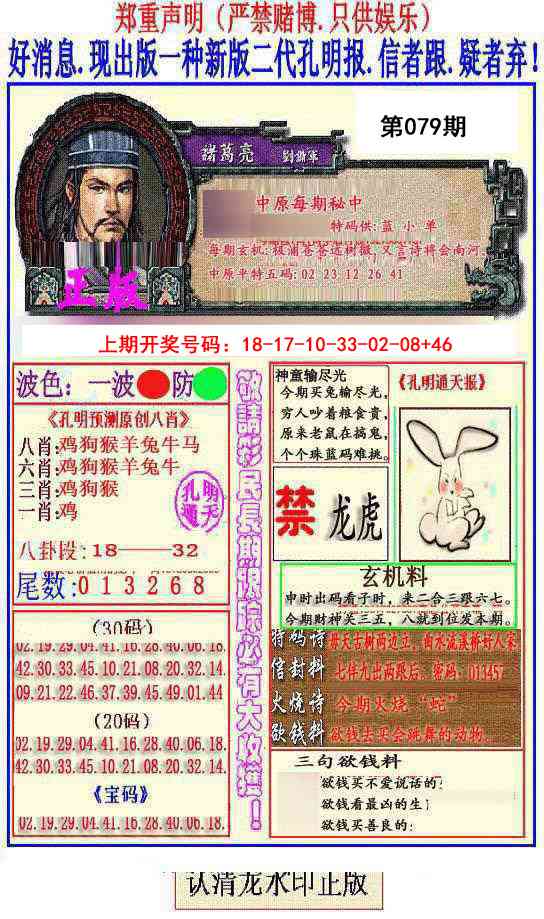 郑重声明（严禁赌博.只供娱乐）
好消息.现出版一种新版二代孔明报.信者跟.疑者弃!
第079期
諸葛亮 劉備軍
中原每期秘中
特码供:蓝 小 单
每期玄机:极浦苍苍远树微,又言诗将会南河.
中原平特五码:02 23 12 26 41
正版
上期开奖号码：18-17-10-33-02-08+46
波色：一波 防
《孔明预测原创八肖》
八肖:鸡狗猴羊兔牛马
六肖:鸡狗猴羊兔牛
三肖:鸡狗猴
一肖:鸡
孔明
通天
八卦段:18——32
尾数:013268
(30码)
02.19.29.04.41.16.28.40.06.18.
42.30.33.45.10.21.08.20.32.14.
09.21.22.46.37.39.45.49.01.44
(20码)
02.19.29.04.41.16.28.40.06.18.
42.30.33.45.10.21.08.20.32.14.
《宝码》
02.19.29.04.41.16.28.40.06.18.
敬請彩民長期跟踪必有大收獲！
神童输尽光
今期买兔输尽光，
穷人吵着粮食贵，
原来老鼠在搞鬼，
个个珠蓝码难挑。
《孔明通天报》
禁 龙虎
玄机料
申时出码看子时，来二合三跟六七。
今期财神买三五，八就到位发本期。
特码诗 天古树两边立，曲水流溪桥好人家
信封料 七伴九出两跟后. 密码：014457
火烧诗 今期火烧“蛇”
欲钱料 欲钱去买会跳舞的动物。
三句欲钱料
欲钱买不爱说话的:
欲钱看最凶的生]
欲钱买善良的:
认清龙水印正版